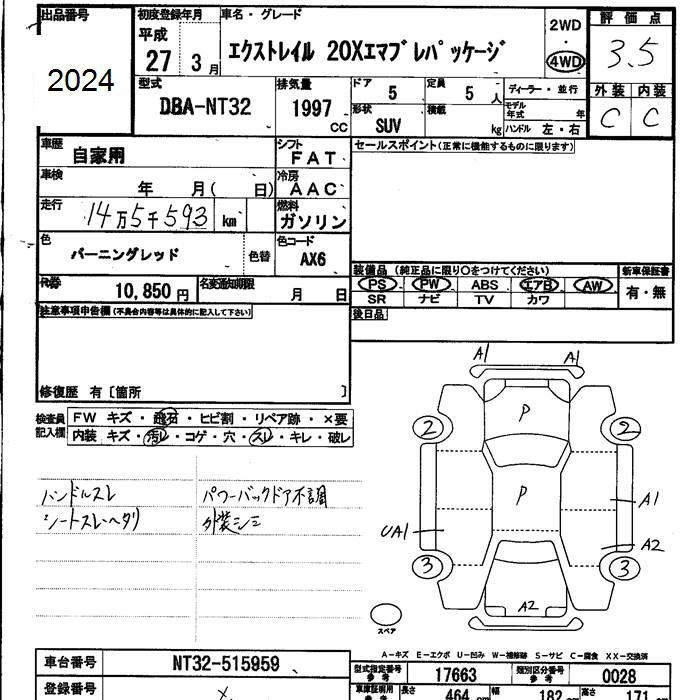 出品番号
2024
初度登録年月
平成
27 3月
車名・グレード
エクストレイル 20Xエマブレパッケージ
2WD
・
4WD
評価点
3.5
外装 内装
C C
型式
DBA-NT32
排気量
1997
CC
ドア
5
定員
5 人
形状
SUV
積載
kg
ディーラー・並行
モデル
年式 年
ハンドル 左・右
車歴
自家用
シフト
FAT
セールスポイント(正常に機能するものに限ります)
車検
年 月( 日)
冷房
AAC
走行
14万5千593 km
燃料
ガソリン
色
バーニングレッド
色替
色コード
AX6
装備品 (純正品に限り○をつけてください)
新車保証書
PS PW ABS エアB AW
有・無
SR ナビ TV カワ
R券
10,850 円
名変通知期限
月 日
後日品
注意事項申告欄(不具合内容等は具体的に記入して下さい)
修復歴 有 [箇所 ]
検査員
記入欄
FW キズ・飛石・ヒビ割・リペア跡・×要
内装 キズ・汚レ・コゲ・穴・スレ・キレ・破レ
ハンドルスレ
シートスレヘタリ
パワーバックドア不調
外装シミ
A1 A1
P
2 2
P
A1
UA1
A2
3 3
A2
スペア
A-キズ E-エクボ U-凹み W-補修跡 S-サビ C-腐食 XX-交換済
車台番号
NT32-515959
型式指定番号
参考
17663
類別区分番号
参考
0028
登録番号
車庫証明用
参考
長さ
464 cm
幅
182 cm
高さ
171 cm